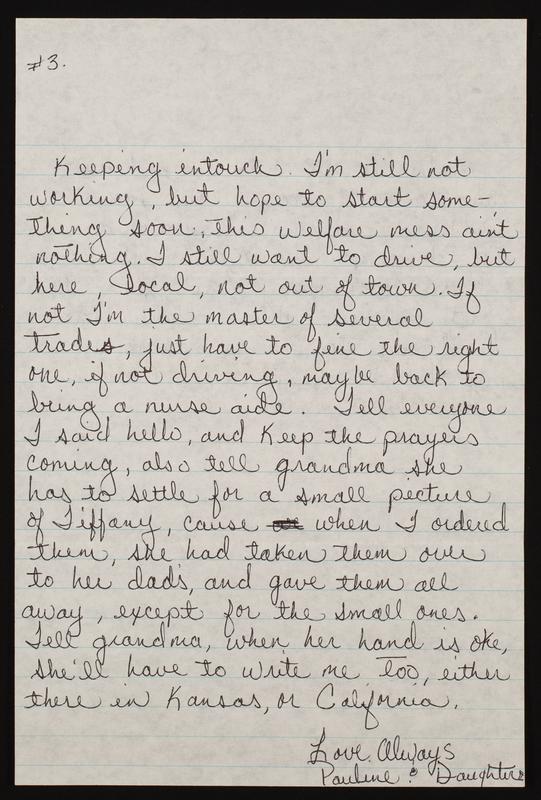 #3.
Keeping intouch. I'm still not
working, but hope to start some-
thing soon, this welfare mess ain't
nothing. I still want to drive, but
here, Local, not out of town. If
not I'm the master of several
trades, just have to fine the right
one, if not driving, maybe back to
being a nurse aide. Tell everyone
I said hello, and Keep the prayers
coming, also tell grandma she
has to settle for a small picture
of Tiffany, cause when I ordered
them, she had taken them over
to her dad's, and gave them all
away, except for the small ones.
Tell grandma, when her hand is oke,
she'll have to write me too, either
there in Kansas, or California.
Love Always
Pauline & Daughters